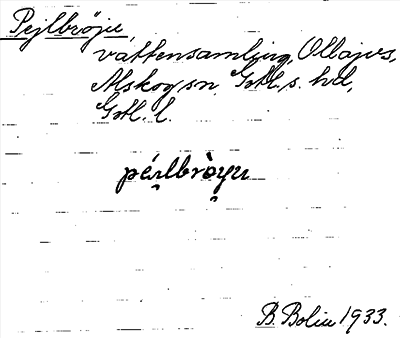 Pejlbröju,
vattensamling, Ollajvs,
Alskog sn. Gotl. s. hd,
Gotl. l.
péi̯lbròyu
B. Bolin 1933.